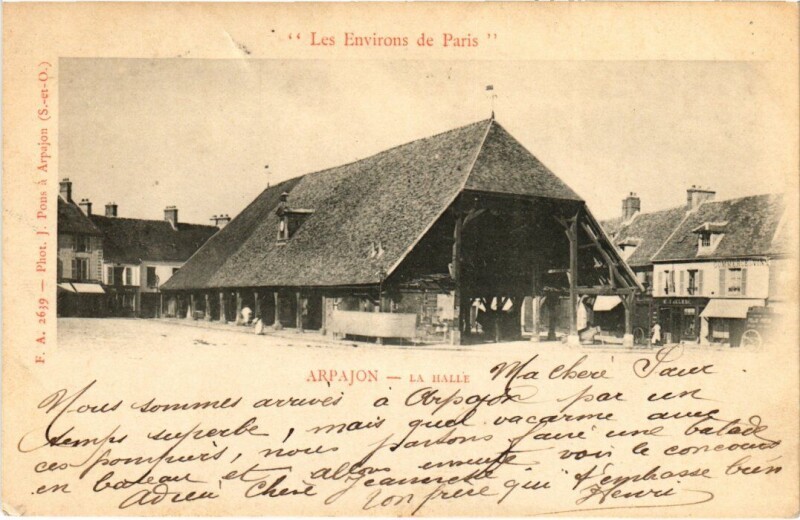 “ Les Environs de Paris ”
F. A. 2639 — Phot. J. Pons à Arpajon (S.-et-O.)
ARPAJON — LA HALLE
Ma cheré Sœur
Nous sommes arrivés à Arpajon par un
temps superbe, mais quel vacarme avec
ces pompiers, nous partons faire une balade
en bateau et allons ensuite voir le concours
Adieu chère Jeannette
ton frère qui t'embrasse bien
Henri